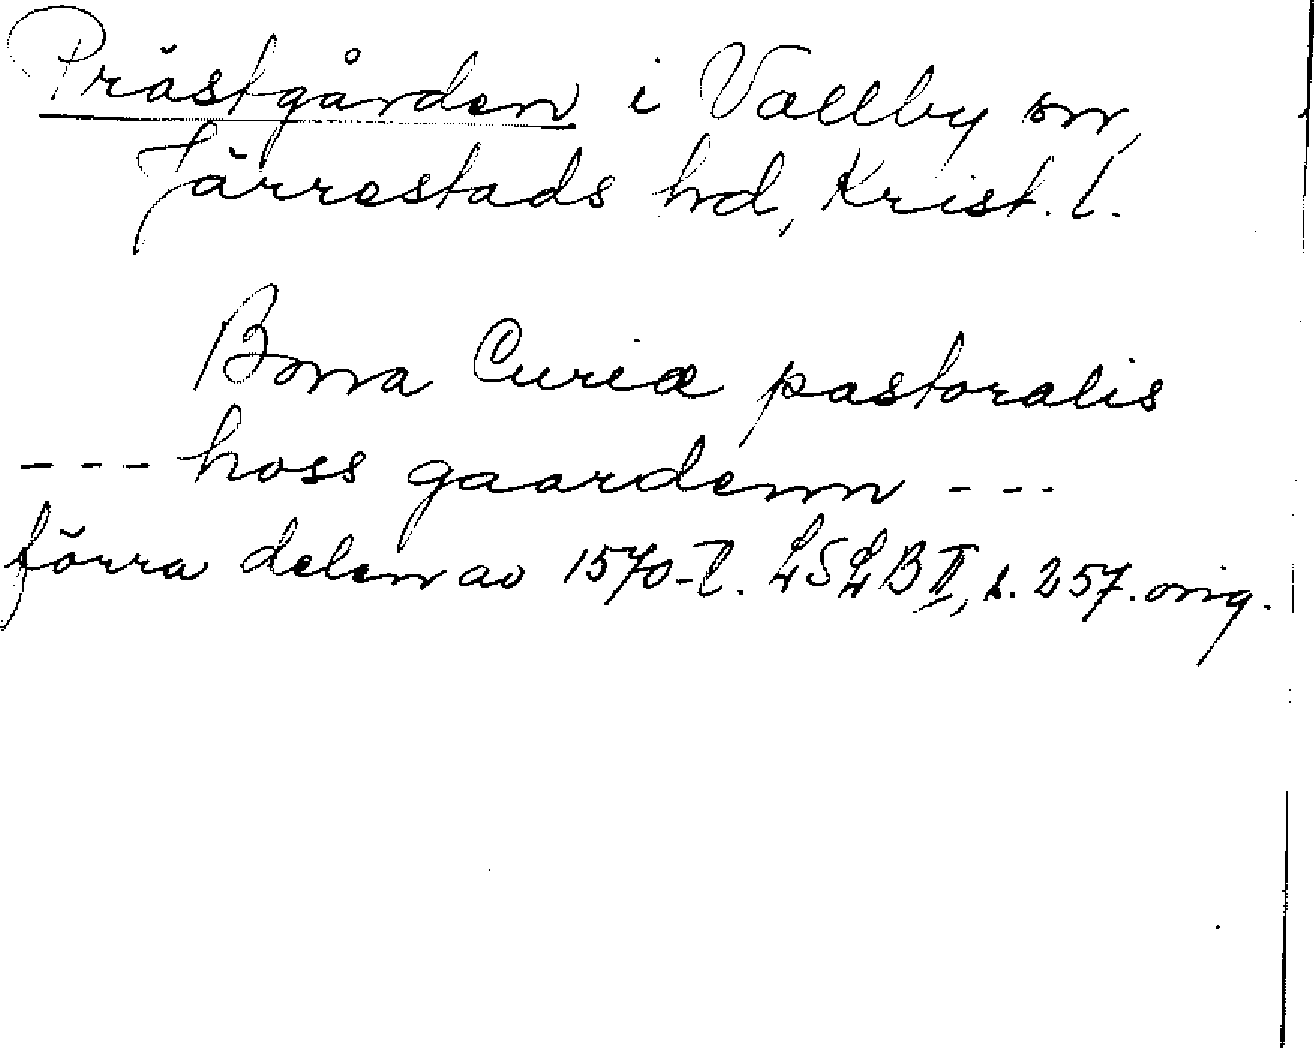 Prästgården i Vallby sn,
Järrestads hd, Krist. l.
Bona Curiæ pastoralis
--- hoss gaardenn ---
förra delen av 1570-t. LSLB II, s. 257. orig.